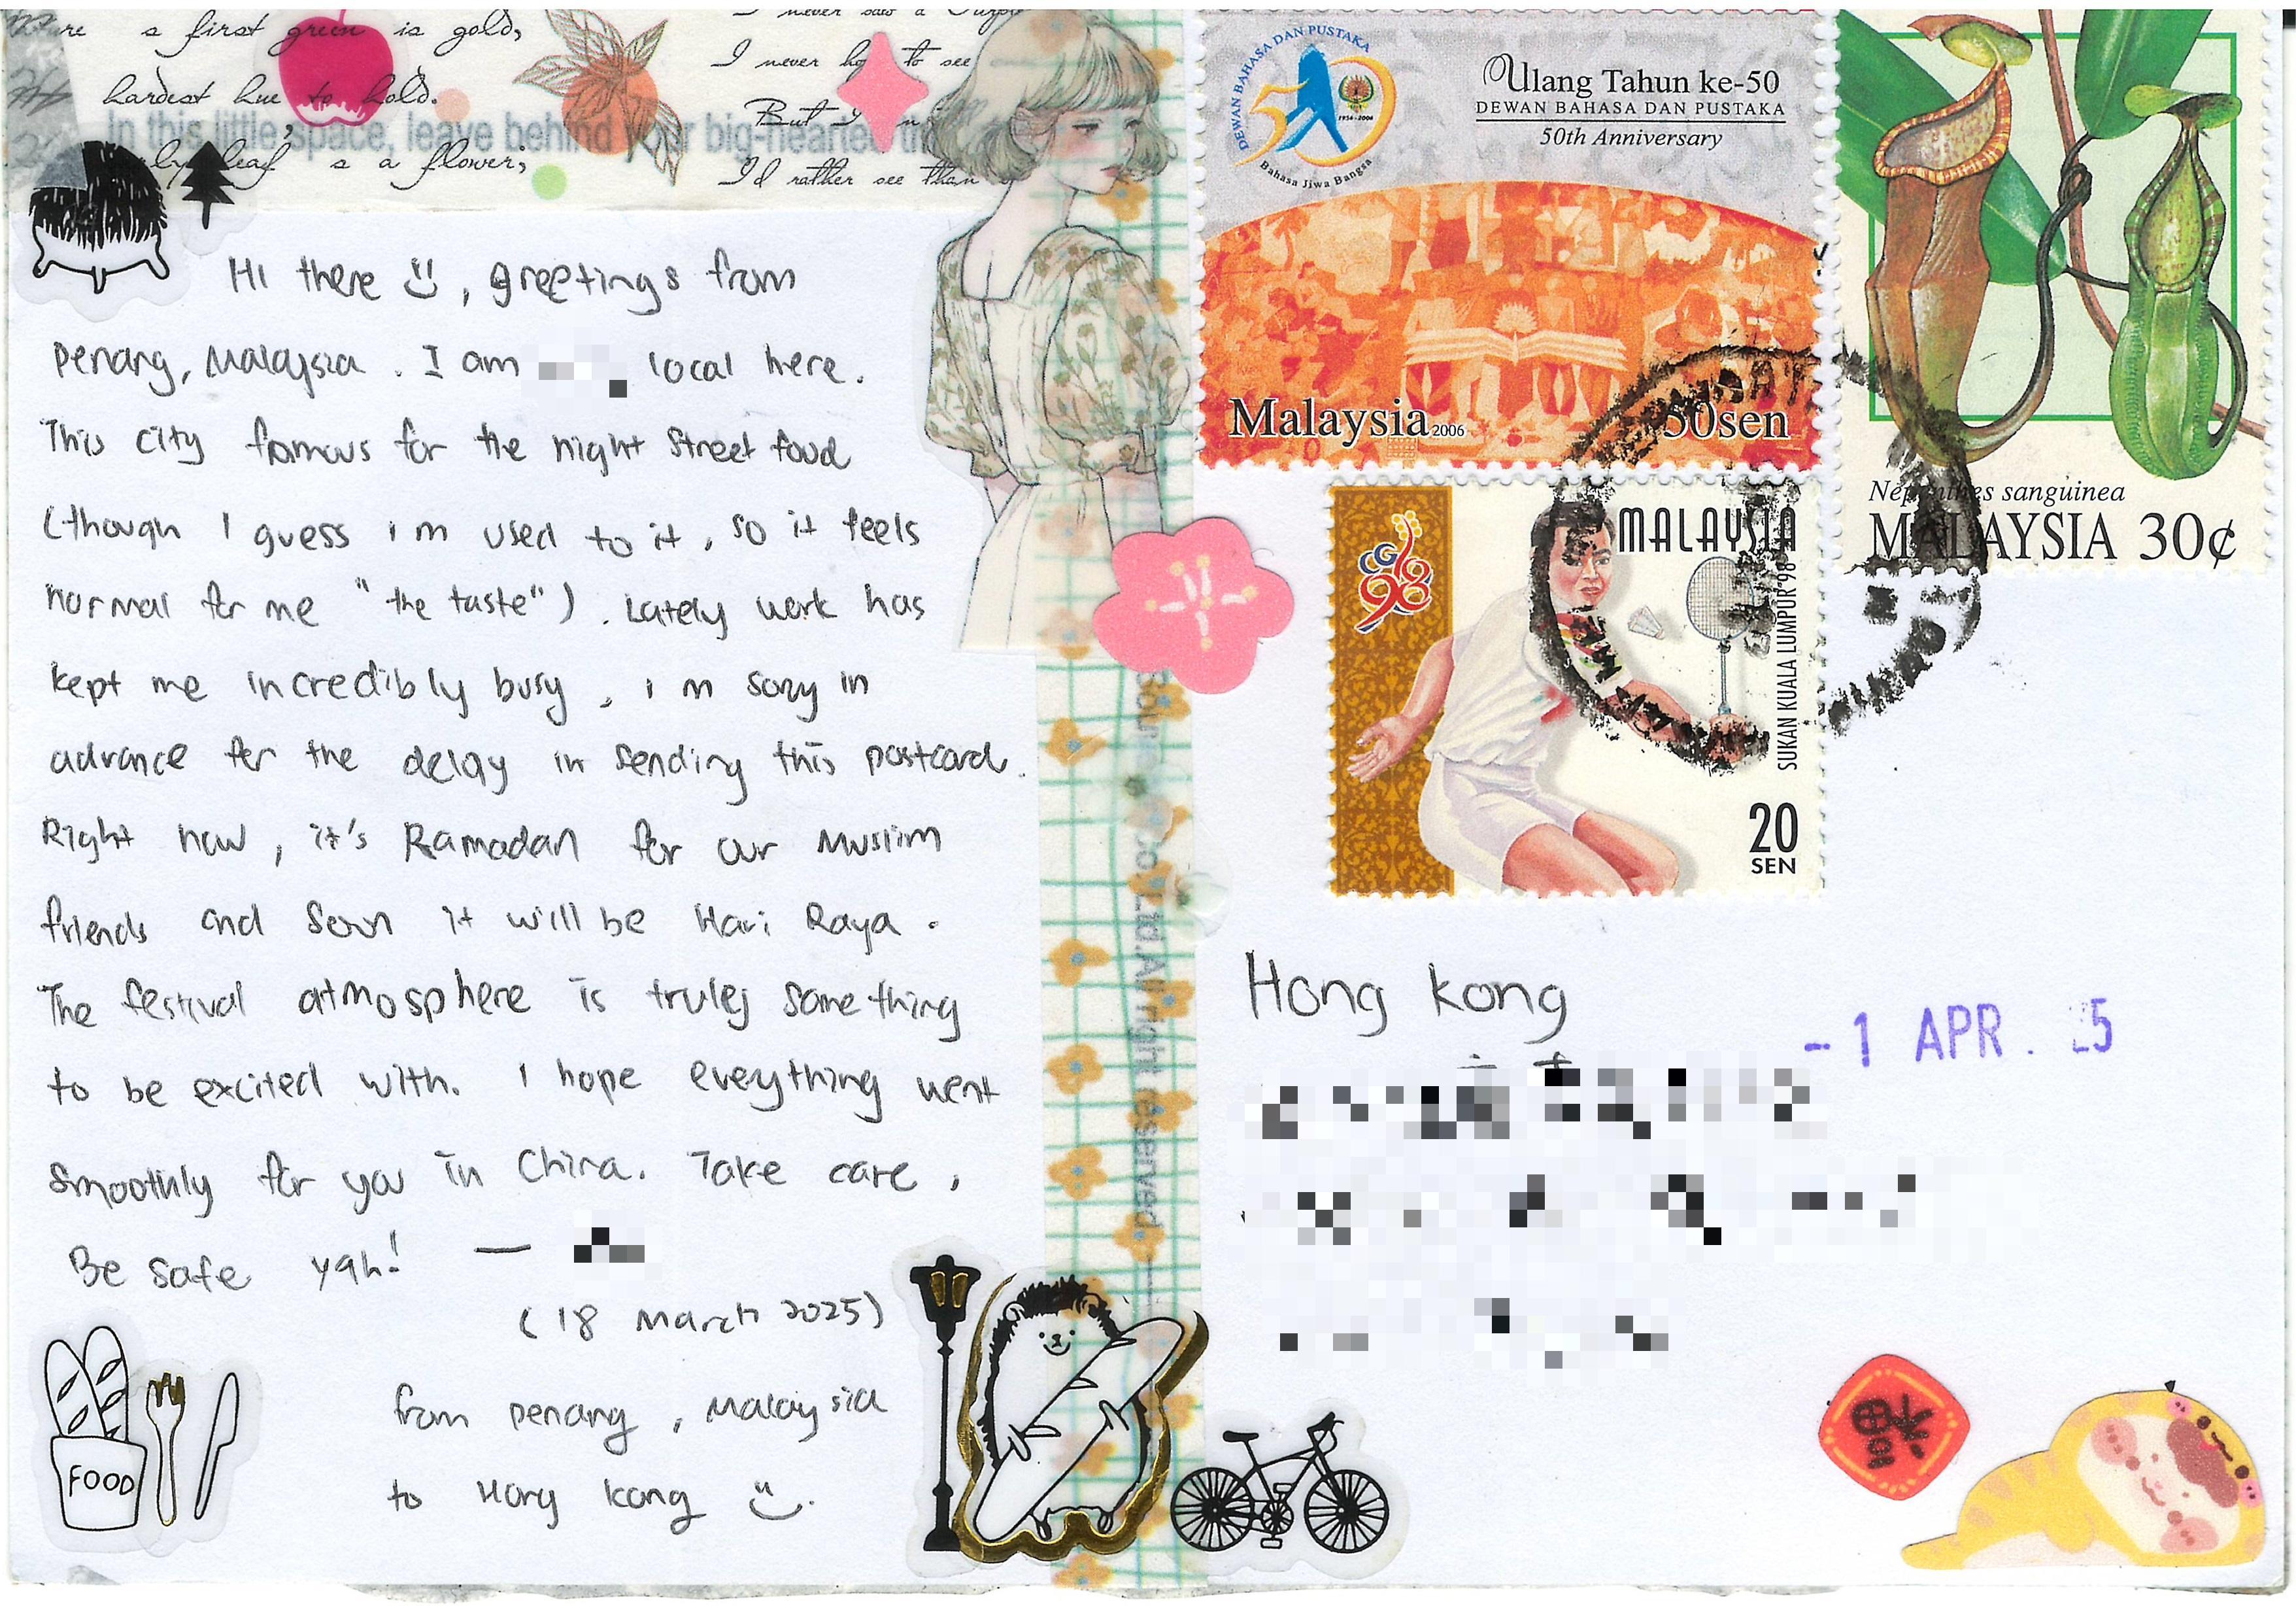 re a first green is gold,
hardest hue to hold.
In this little space, leave behind your big-hearted
ly leaf s a flower;
I never saw a Purple
I never ho to see
But I
I'd rather see than
Hi there, greetings from
Penang, Malaysia. I am local here.
This city famous for the night street food
(though I guess i m used to it, so it feels
normal for me "the taste"). Lately work has
kept me incredibly busy, i m sorry in
advance for the delay in sending this postcard.
Right now, it's Ramadan for our Muslim
friends and soon it will be Hari Raya.
The festival atmosphere is truly something
to be excited with. I hope everything went
smoothly for you in China. Take care,
Be safe yah! —
(18 March 2025)
from Penang, Malaysia
to Hong Kong
FOOD
Ltd. All right reserved
DEWAN BAHASA DAN PUSTAKA
50
1956-2006
Bahasa Jiwa Bangsa
Ulang Tahun ke-50
DEWAN BAHASA DAN PUSTAKA
50th Anniversary
Malaysia 2006
50sen
Nepenthes sanguinea
MALAYSIA 30¢
CG
98
MALAYSIA
SUKAN KUALA LUMPUR '98
20
SEN
Hong Kong
-1 APR. 25
福